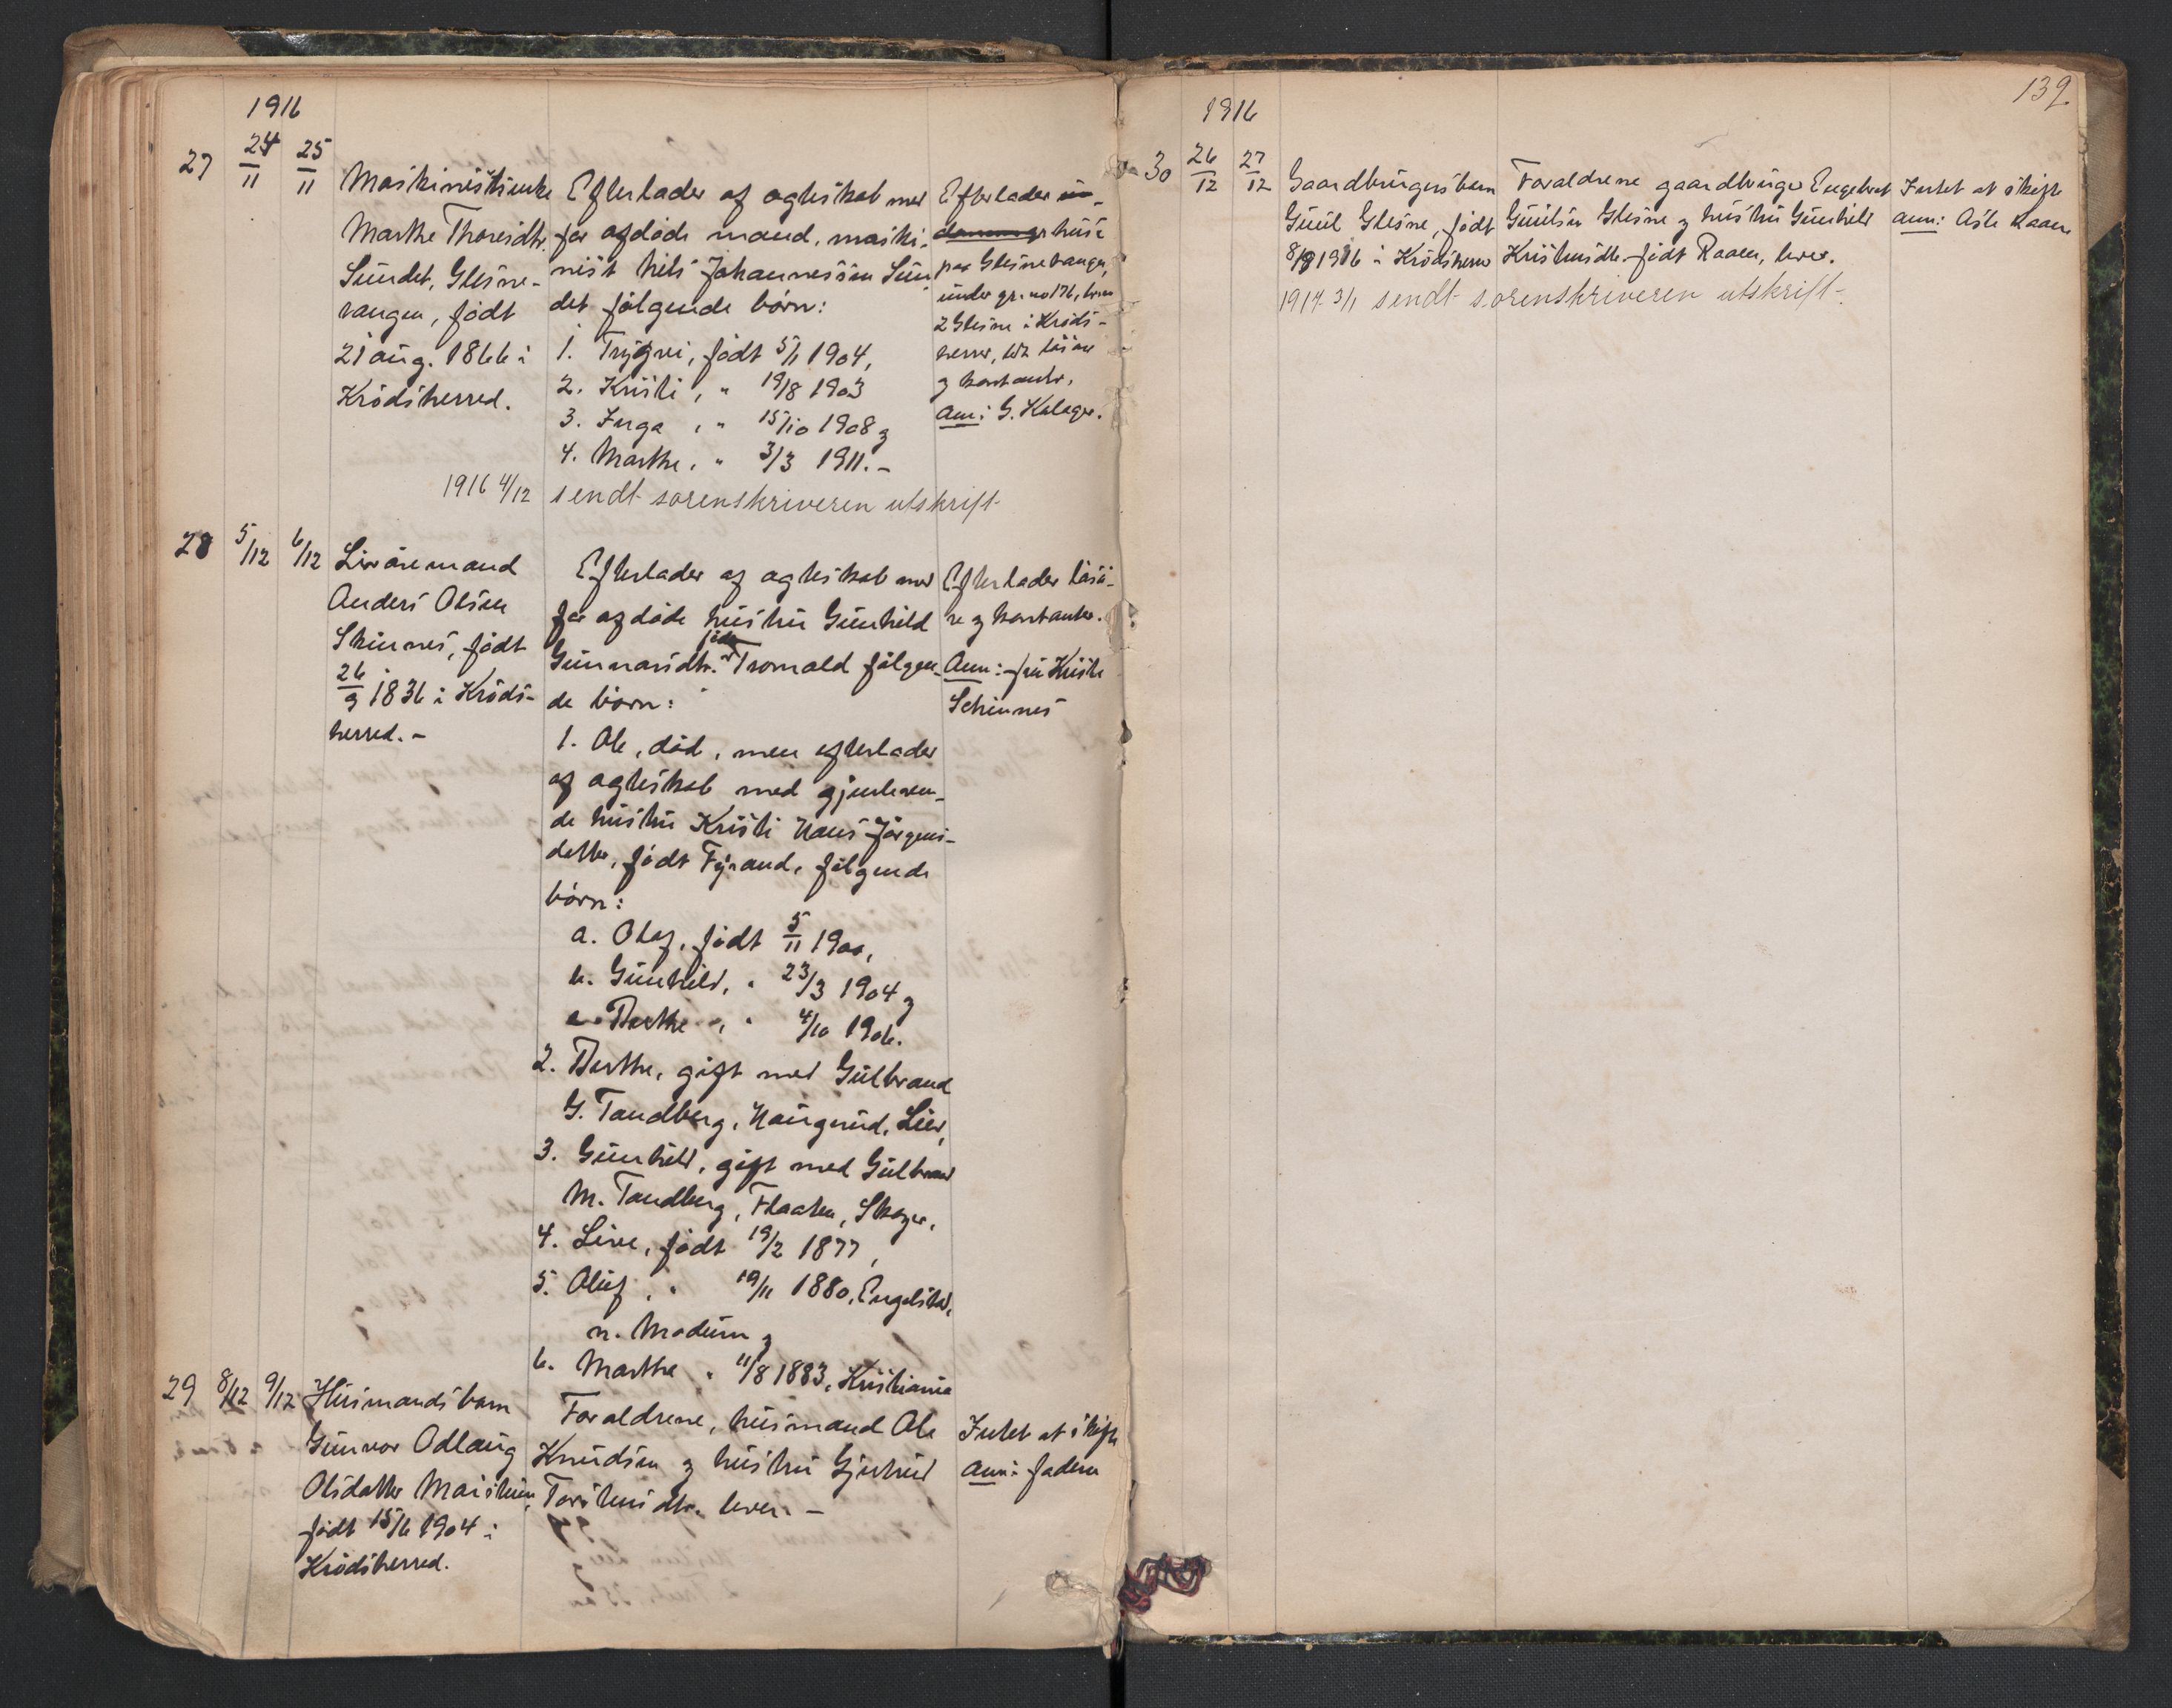 1916
27 24/11 25/11
Maskinistenke
Marthe Thoresdtr.
Sundet, Glesne-
vangen, født
21 aug. 1866 i
Krødsherred.
Efterlader af ægteskab med
før afdøde mand, maski-
nist Nils Johannessen Sun-
det følgende børn:
1. Trygvi, født 5/1 1904,
2. Kristi, " 19/8 1903
3. Inga, " 15/10 1908 og
4. Marthe, " 3/3 1911. -
Efterlader
hus
paa Glesnevangen,
under gr. no 176, brno
2 Glesne i Krøds-
herred, litt løsøre
og kontanter.
Anm: G. Kalager.
1916 4/12 sendt sorenskriveren utskrift
28 5/12 6/12
Livøremand
Anders Olsen
Skinnes, født
26/9 1836 i Krøds-
herred. -
Efterlader af ægteskab med
før afdøde hustru Gunhild
Gunnarsdtr. født Tromald følgen-
de børn:
1. Ole, død, men efterlader
af ægteskab med gjenleven-
de hustru Kristi Hans Jørgens-
datter, født Fyrand, følgende
børn:
a. Olaf, født 5/11 1900,
b. Gunhild, " 23/3 1904 og
c. Berthe, " 4/10 1906.
2. Berthe, gift med Gulbrand
G. Tandberg, Haugerud, Lier,
3. Gunhild, gift med Gulbrand
M. Tandberg, Flaaten, Skoger,
4. Live, født 19/2 1877,
5. Oluf, " 19/11 1880, Engelstad,
n. Modum og
6. Marthe " 11/8 1883, Kristiania
Efterlader løsø-
re og kontanter.
Anm: fru Kristi
Schinnes
29 8/12 9/12
Husmandsbarn
Gunvor Odlaug
Olsdatter Moistuen,
født 15/6 1904 i
Krødsherred.
Forældrene, husmand Ole
Knudsen og hustru Gjertrud
Torstensdtr. lever. -
Intet at skifte
Anm: faderen
139.
1916
30 26/12 27/12
Gaardbrugersbarn
Guul Glesne, født
8/9 1916 i Krødsherred
Forældrene gaardbruger Engebret
Guulsen Glesne og hustru Gunhild
Kristensdtr. født Raaen, lever.
Intet at skifte
Anm: Asle Raaen
1917 3/1 sendt sorenskriveren utskrift.